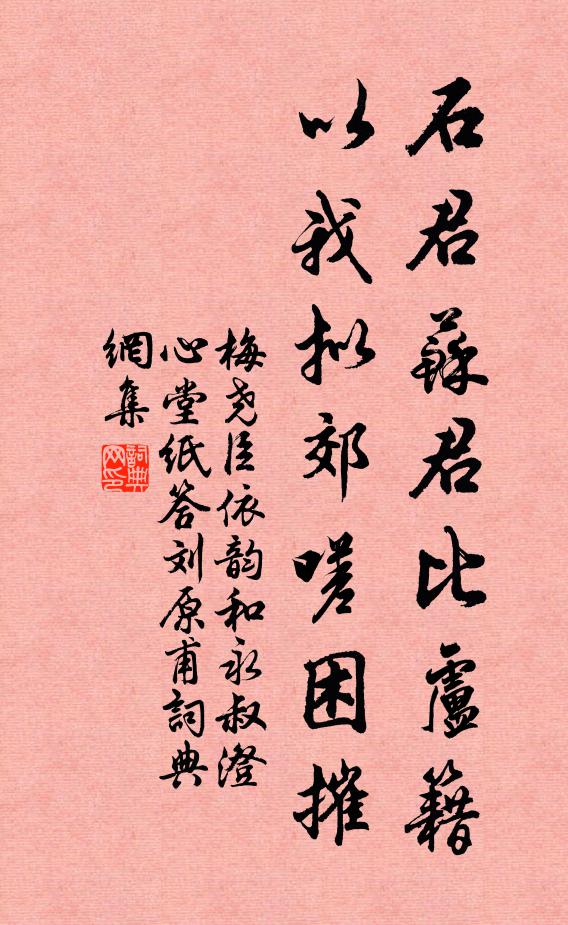 石君蘇君比盧籍
以我拟郊嗟困摧
梅尧臣依韵和永叔澄
心堂纸答刘原甫詞典
網集
詞典
网印